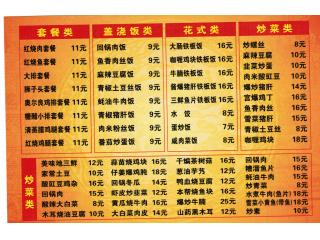 套餐类
红烧肉套餐 11元
红烧鱼套餐 11元
大排套餐 11元
狮子头套餐 11元
奥尔良鸡排套餐 11元
糖醋小排套餐 11元
清蒸腊鸡腿套餐 11元
红烧鸡腿套餐 11元
盖浇饭类
回锅肉饭 9元
鱼香肉丝饭 9元
麻辣豆腐饭 9元
青椒土豆丝饭 9元
蚝油牛肉饭 9元
青椒炒猪肝饭 9元
肉末粉丝饭 9元
番茄炒蛋饭 9元
花式类
大肠铁板饭 16元
咖喱鸡块铁板饭 16元
牛腩铁板饭 16元
爆炒猪肝铁板饭 16元
三鲜鱼片铁板饭 16元
水饺 8元
蛋炒饭 7元
咸肉菜饭 8元
炒菜类
炒螺丝 8元
麻辣豆腐 10元
韭菜炒蛋 10元
肉米酸豇豆 10元
爆炒猪肝 14元
宫爆鸡丁 16元
鱼香肉丝 15元
雪菜猪肝 15元
青椒土豆丝 8元
红烧鸡块 18元
炒菜类
美味地三鲜 12元
家常豆腐 10元
酸豇豆鸡杂 16元
回锅肉 15元
酸辣大白菜 8元
木耳烧油豆腐 10元
蒜苗烧鸡块 16元
仔姜爆鸡脆 18元
回锅冬瓜 14元
虾皮炒韭菜 12元
黄瓜烧牛肉 16元
大白菜肉皮 14元
干煸茶树菇 16元
葱油芋艿 12元
鸭血烧豆腐 12元
本帮烧鲶鱼 18元
爆炒牛腩 25元
山药黑木耳 12元
回锅肉 15元
糟溜鱼片 16元
蚝油牛肉 15元
炒青菜 8元
水煮牛肉(鱼片) 18元
雪菜小黄鱼(带鱼) 18元
炒素 10元